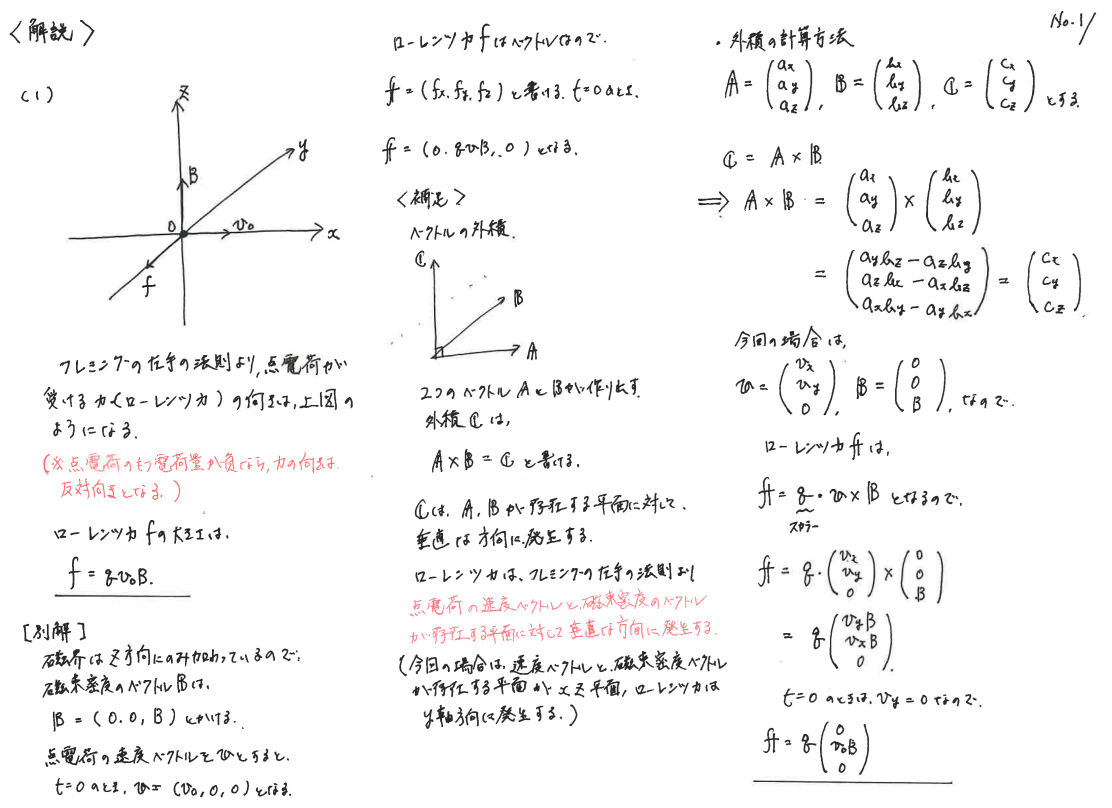 <解説>
(1)
z
y
B
0
v₀
x
f
フレミングの左手の法則より,点電荷が
受ける力(ローレンツ力)の向きは,上図の
ようになる.
(※点電荷のもつ電荷量が負なら,力の向きは
反対向きとなる.)
ローレンツ力fの大きさは,
f = qv₀B.
[別解]
磁界はz方向にのみ加わっているので,
磁束密度のベクトルBは,
B = (0.0, B) とかける.
点電荷の速度ベクトルをvとすると,
t=0のとき, v = (v₀, 0, 0) となる.
ローレンツ力fはベクトルなので.
f = (fx, fy, fz) と書ける. t=0のとき.
f = (0. qvB, 0) となる.
<補足>
ベクトルの外積.
C
B
A
2つのベクトルAとBが作り出す
外積Cは,
A×B = C と書ける.
Cは, A, Bが存在する平面に対して.
垂直な方向に発生する.
ローレンツ力は、フレミングの左手の法則より
点電荷の速度ベクトルと,磁束密度のベクトル
が存在する平面に対して垂直な方向に発生する.
(今回の場合は,速度ベクトルと,磁束密度ベクトル
が存在する平面がxz平面,ローレンツ力は
y軸方向に発生する.)
No.1/
・外積の計算方法
A = (ax ay az), B = (bx by bz), C = (cx cy cz) とする.
C = A × B
⇒ A × B = (ax ay az) × (bx by bz)
= (aybz - azby azbx - axbz axby - aybx) = (cx cy cz)
今回の場合は,
v = (vx vy 0), B = (0 0 B), なので.
ローレンツ力fは,
f = q・v×B となるので.
スカラー
f = q・(vx vy 0) × (0 0 B)
= q(vyB vxB 0).
t=0のときは, vy = 0なので.
f = q(0 v₀B 0)